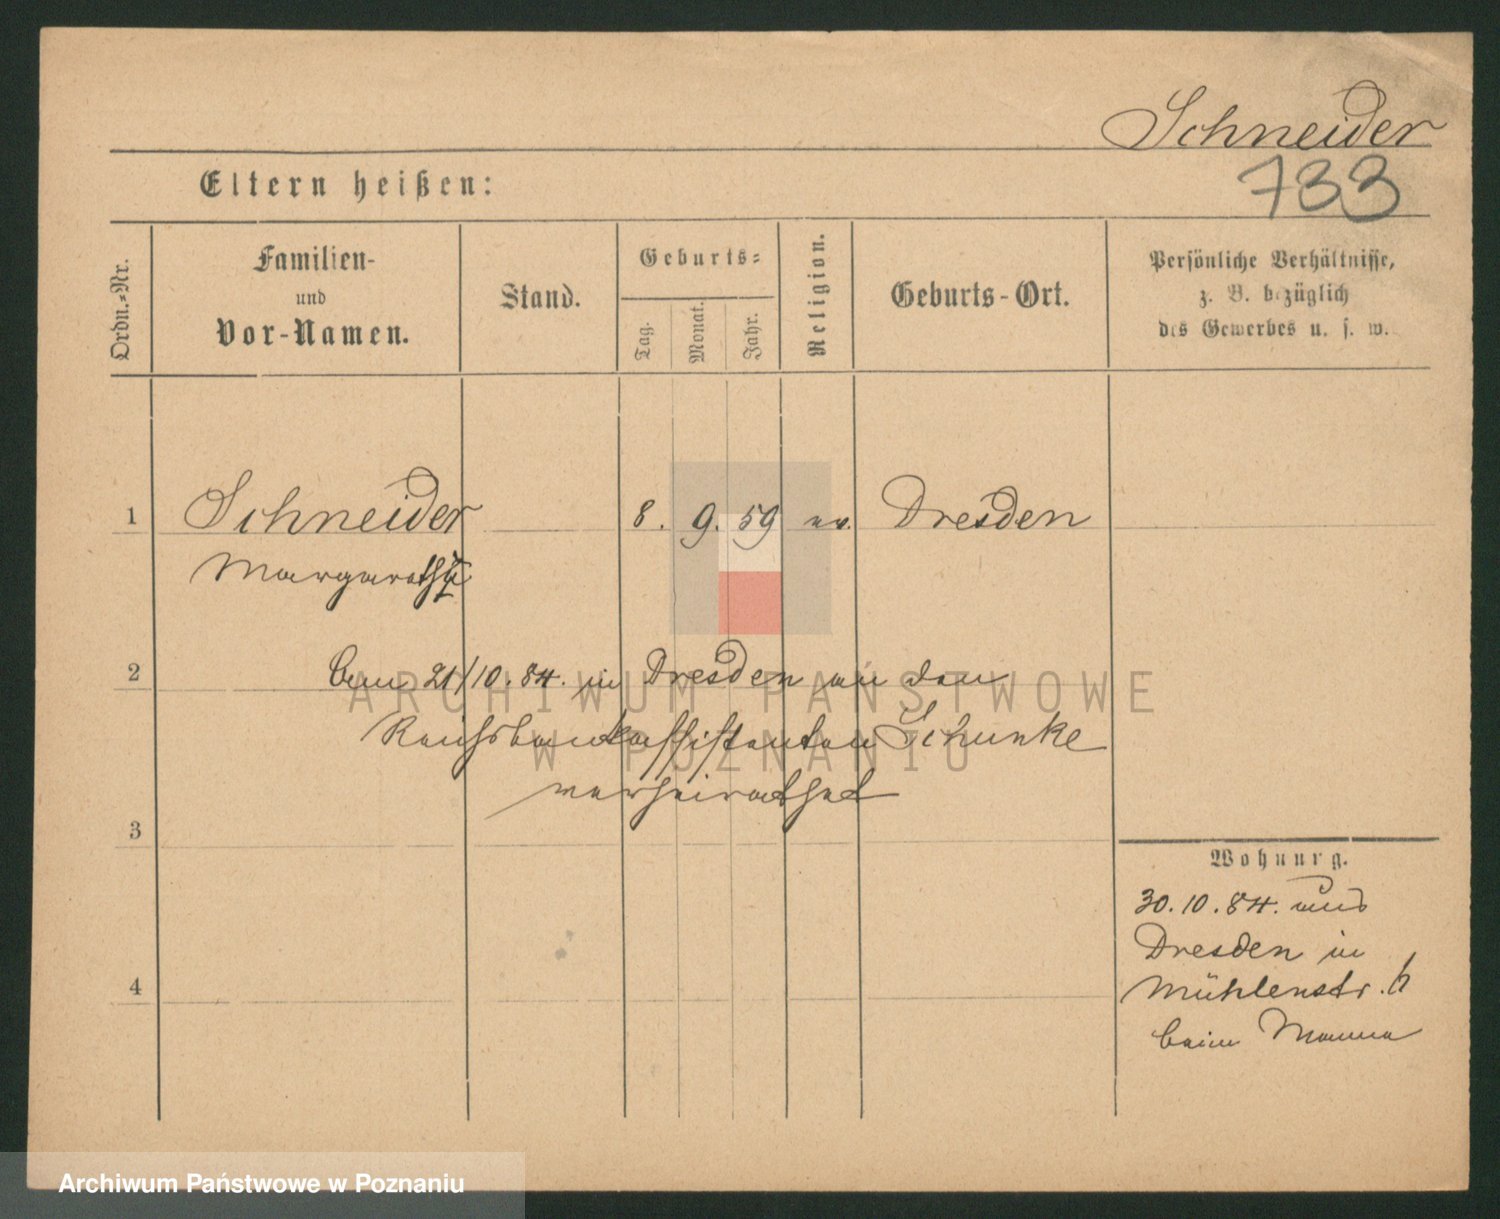 Schneider
733
Eltern heißen:
Ordn.-Nr.
Familien-
und
Vor-Namen.
Stand.
Geburts-
Tag.
Monat.
Jahr.
Religion.
Geburts-Ort.
Persönliche Verhältnisse,
z. B. bezüglich
des Gewerbes u. s. w.
1 Schneider 8. 9. 59 ev. Dresden
Margarethe
2 21/10.84. in Dresden an den
Reichsbankassistenten Schunke
verheirathet
ARCHIWUM PAŃSTWOWE
W POZNANIU
3
Wohnung.
30.10.84. aus
Dresden in
Mühlenstr.
beim Manne
4
Archiwum Państwowe w Poznaniu